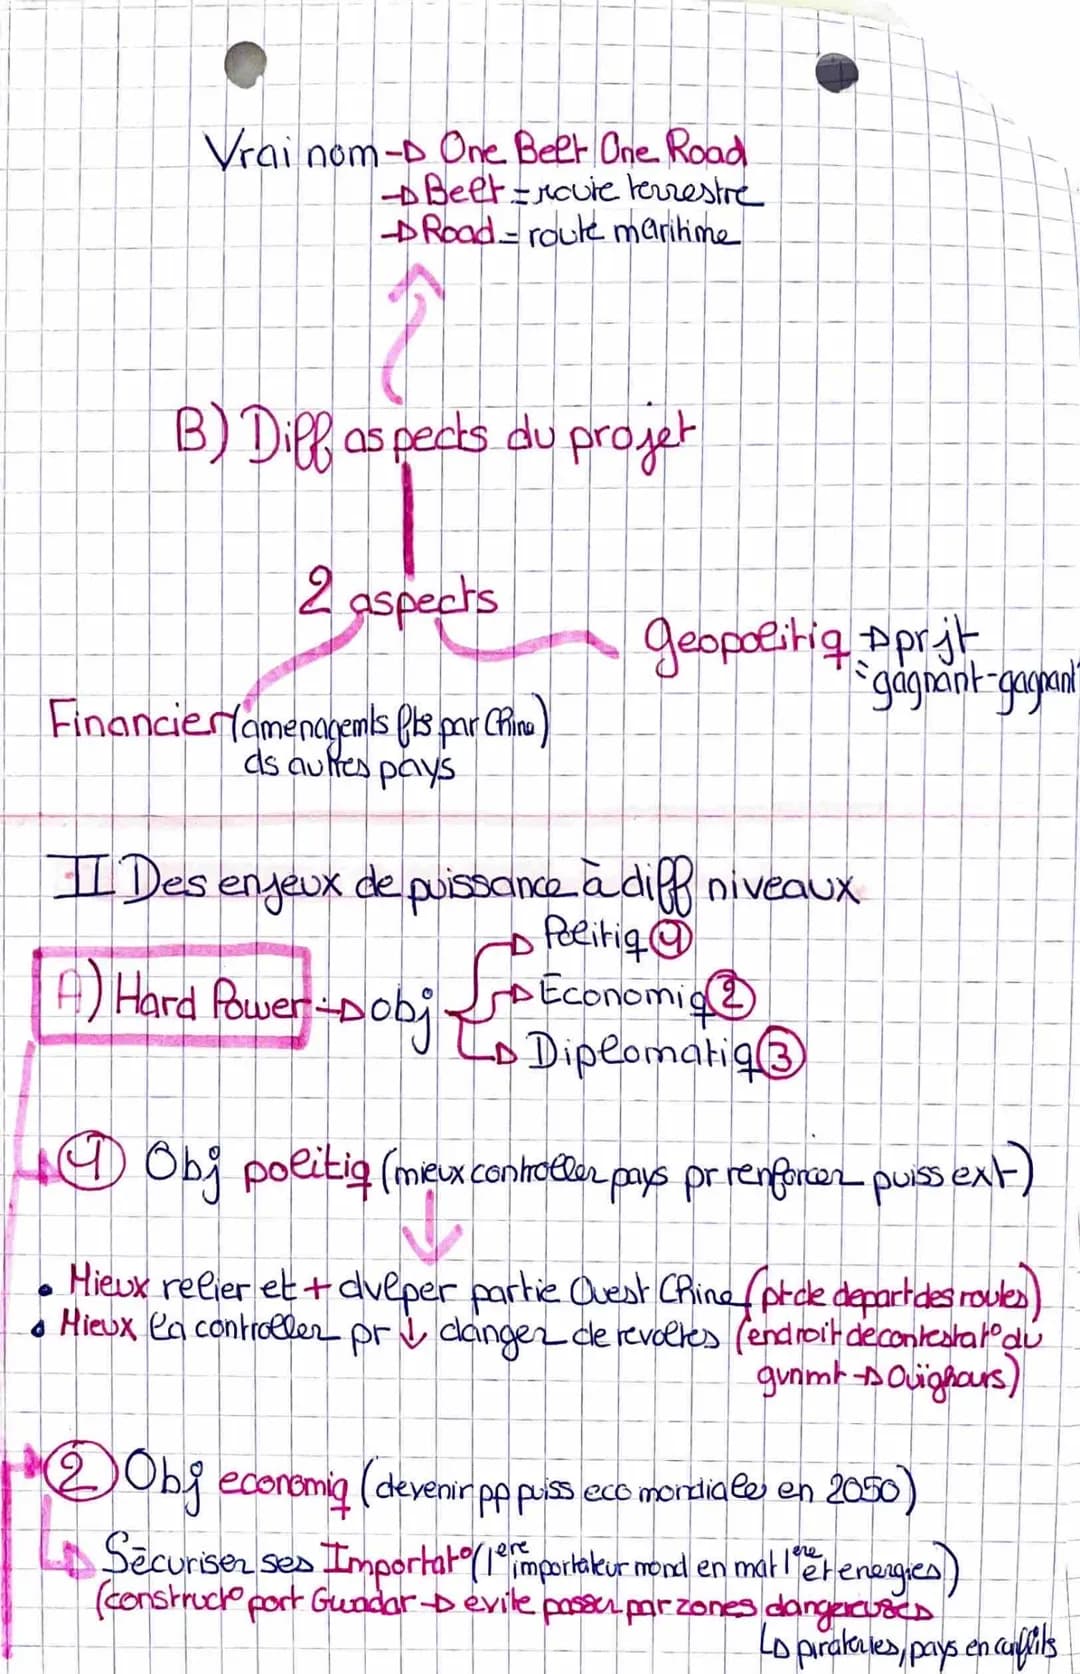 Vrai nom → One Belt One Road
→ Belt = route terrestre
→ Road = route maritime
B) Diff aspects du projet
2 aspects
Geopolitiq → prjt
"gagnant-gagnant"
Financier (aménagemts fts par Chine)
ds autres pays
II Des enjeux de puissance à diff niveaux
Politiq ①
A) Hard Power → obj
Economiq ②
Diplomatiq ③
① Obj politiq (mieux controller pays pr renforcer puiss ext)
• Mieux relier et + dvlper partie Ouest Chine (pt de depart des routes)
• Mieux la controller pr ↓ danger de revoltes (endroit de contestat° du
gvnmt → Ouïghours)
② Obj economiq (devenir pp puiss eco mondiale en 2050)
↳ Sécuriser ses Importat° (1ere importateur mond en mat 1ere et energies)
(construct° port Gwadar → evite passer par zones dangereuses
↳ pirateries, pays en conflits